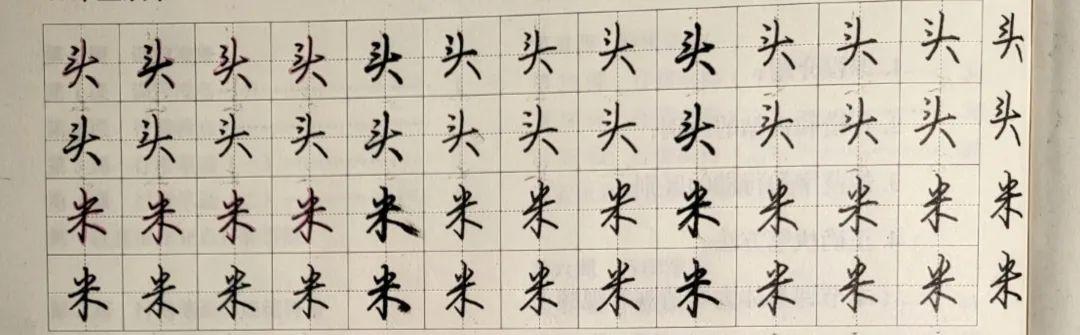 头头头头头头头头头头头头头
头头头头头头头头头头头头头
米米米米米米米米米米米米米
米米米米米米米米米米米米米